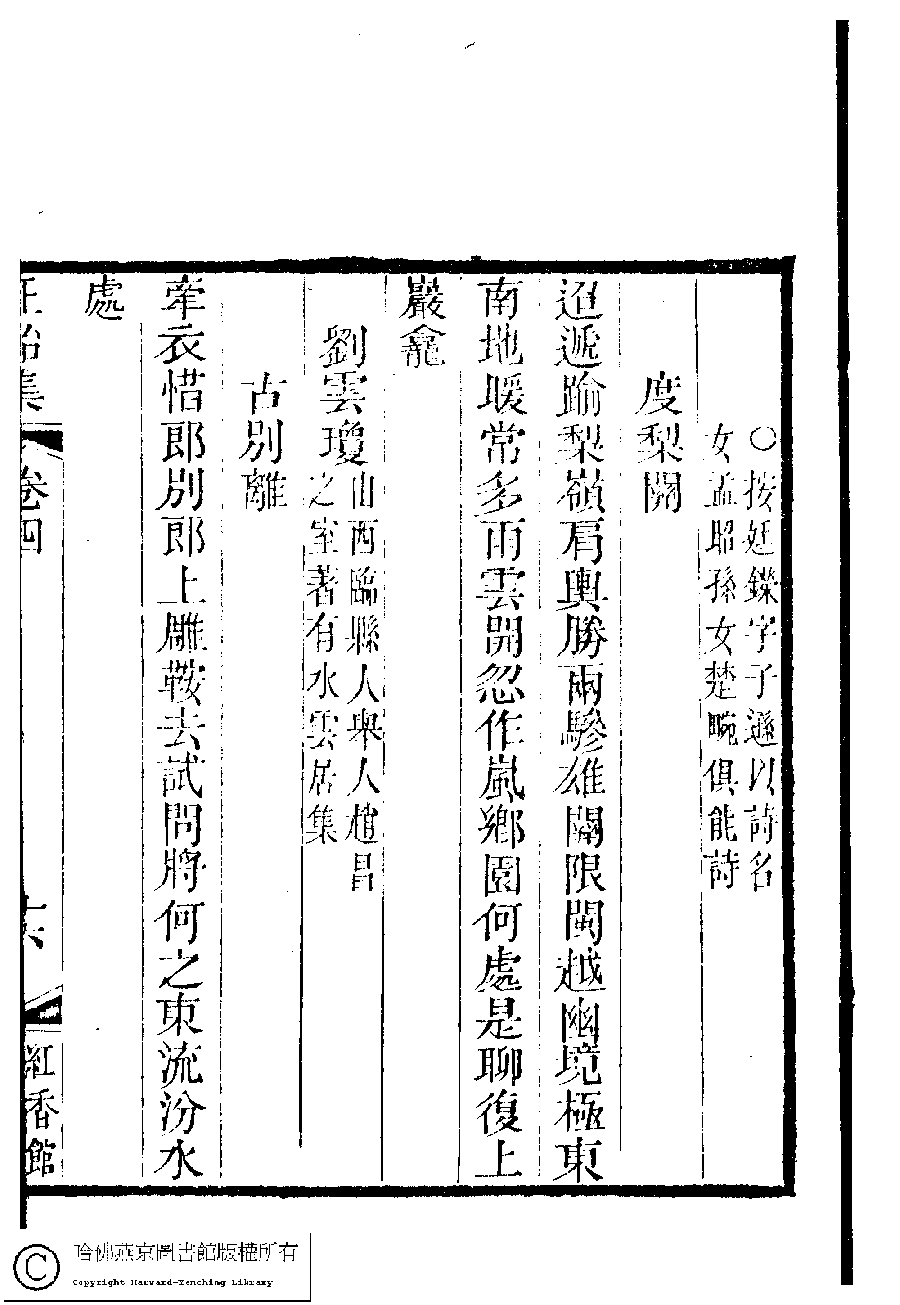 ○按廷鑅字子遜以詩名
女孟昭孫女楚畹俱能詩
度梨關
迢遞踰梨嶺肩輿勝兩驂雄關限閩越幽境極東
南地暖常多雨雲開忽作嵐鄉園何處是聊復上
巖龕
劉雲瓊山西臨縣人舉人趙昌
之室著有水雲居集
古別離
牽衣惜郎別郎上雕鞍去試問將何之東流汾水
處
正始集 卷四
紅香館
哈佛燕京圖書館版權所有
Copyright Harvard-Yenching Library